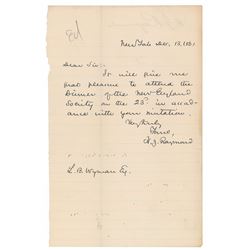 New York Dec. 13, 1851
Dear Sir:
It will give me
great pleasure to attend the
Dinner of the New England
Society on the 23d in accord-
ance with your invitation.
Very truly
Yours,
H. J. Raymond
L. B. Wyman Esq.